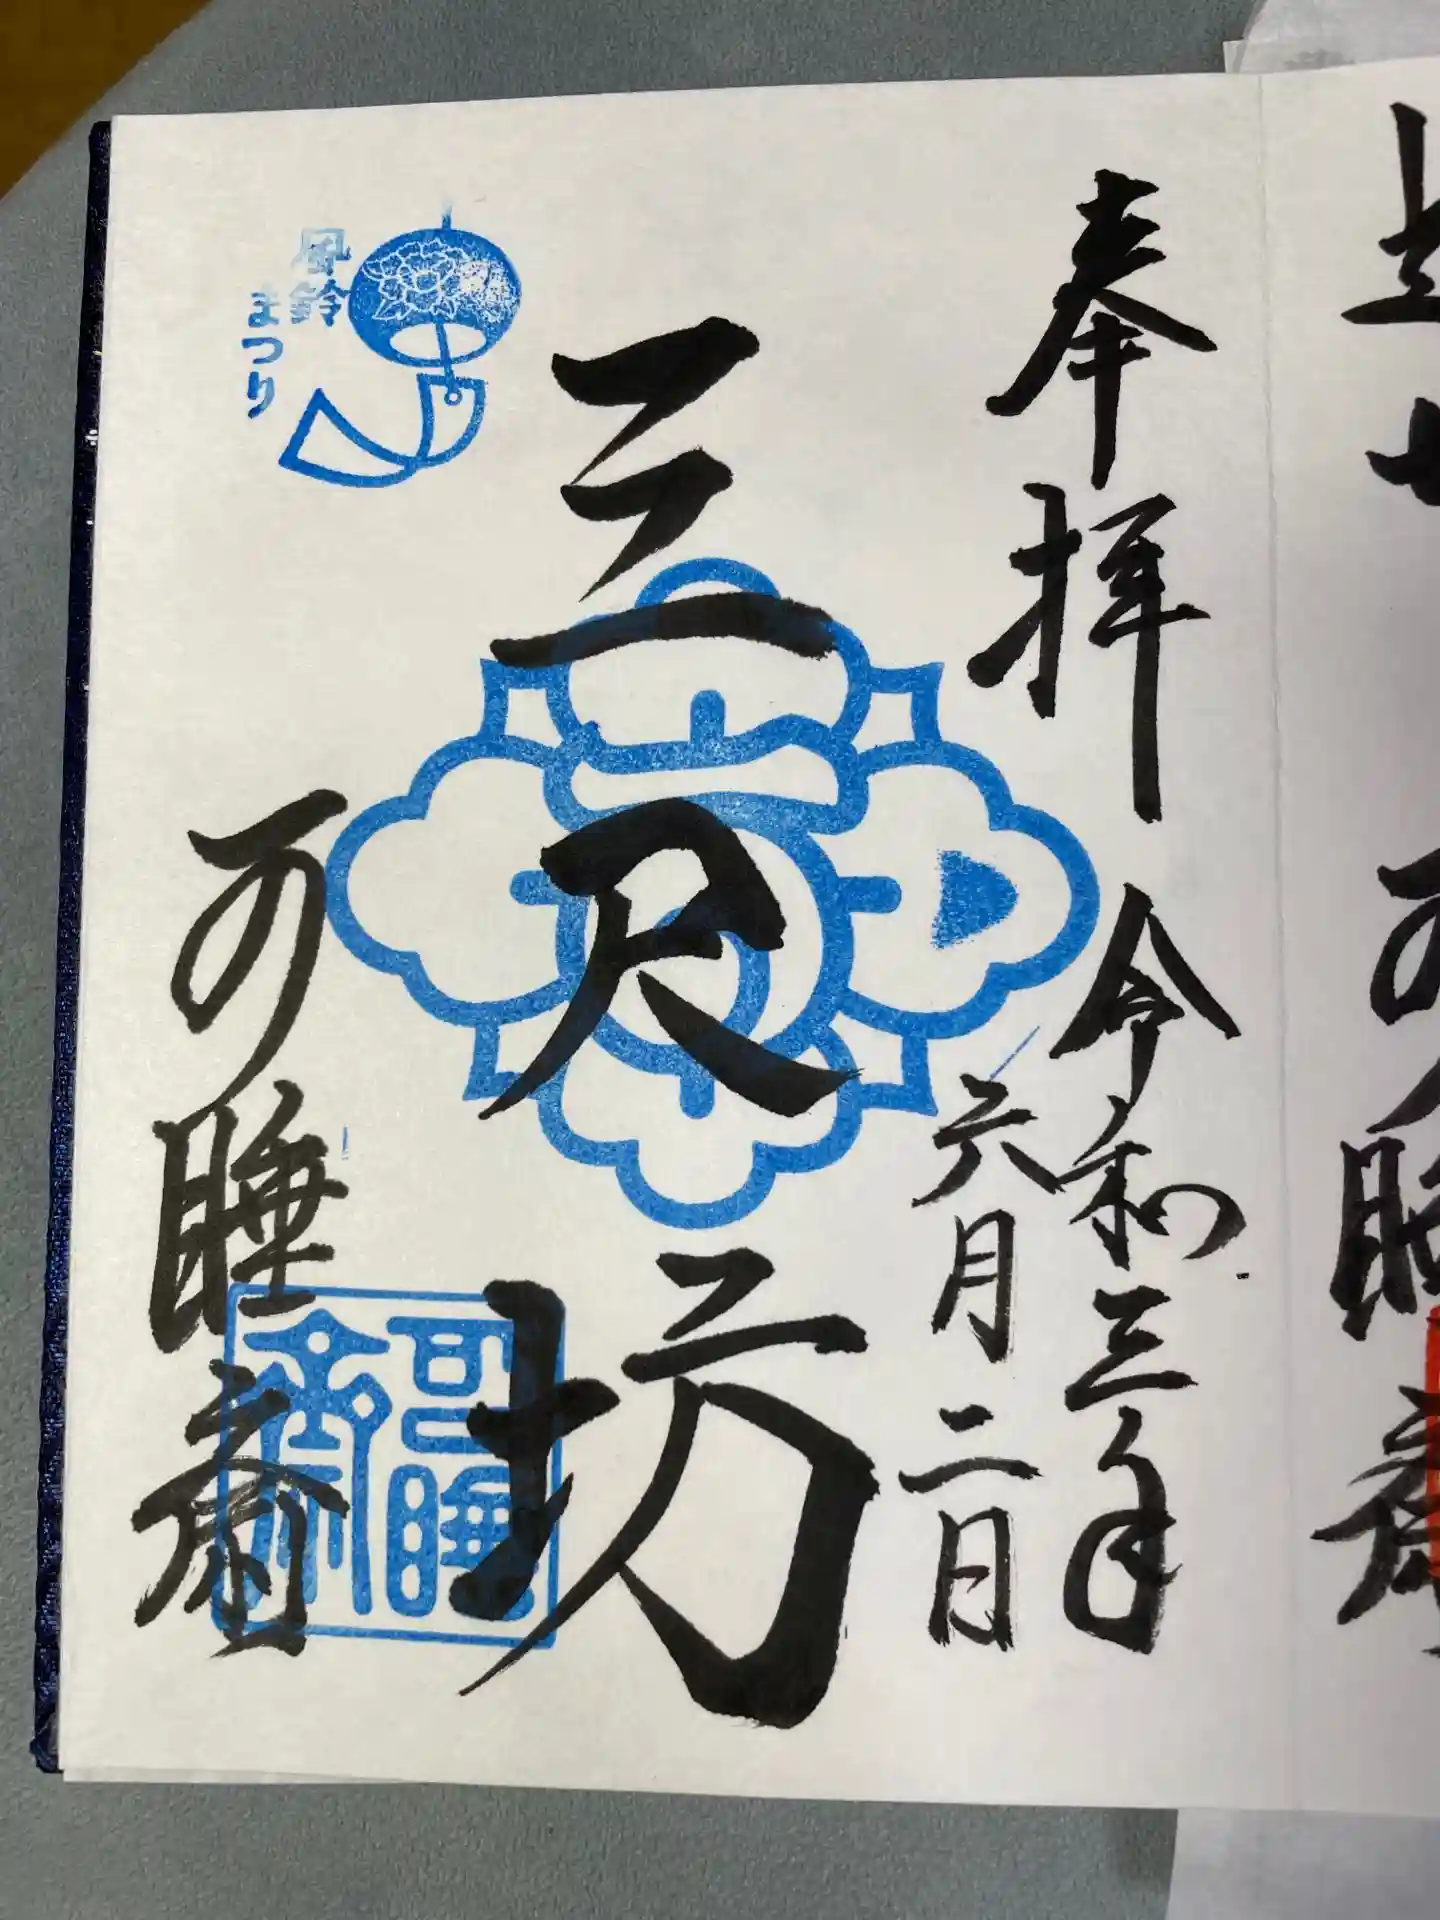 奉拝
令和三年
六月二日
三尺坊
可睡斎
風鈴
まつり
可睡
斎